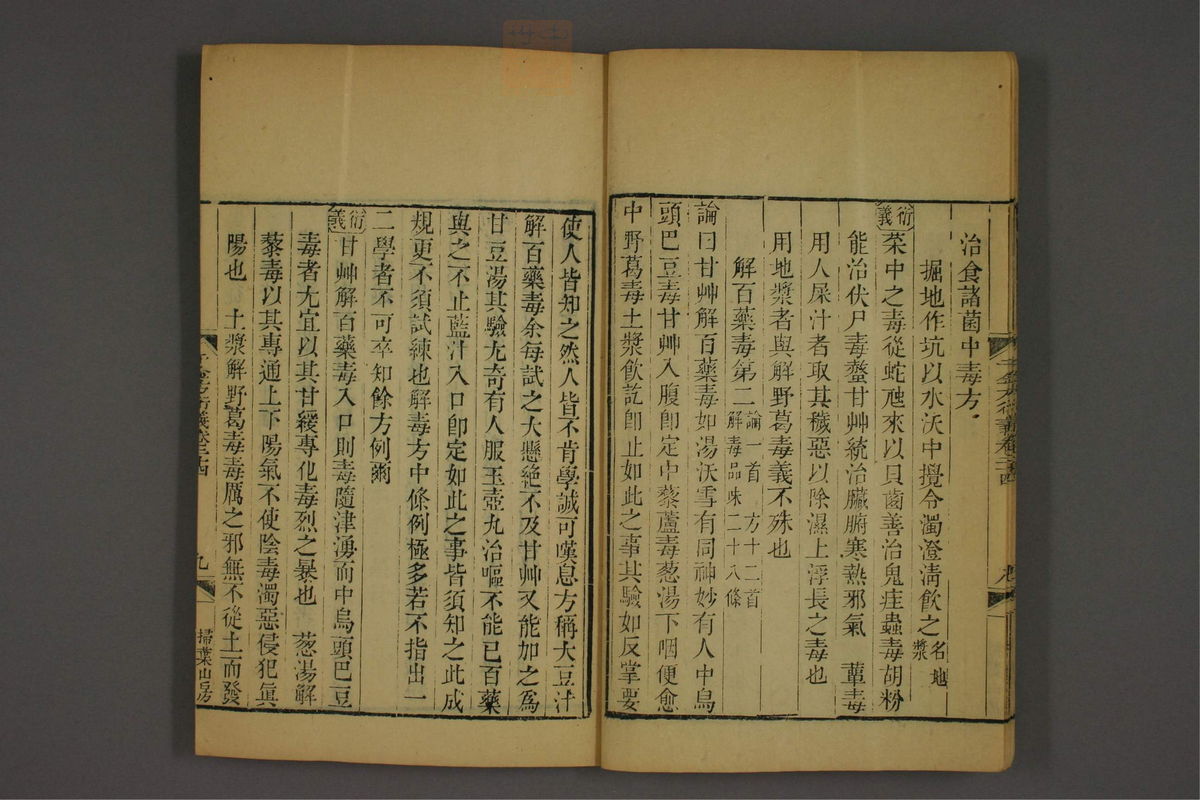 治食諸菌中毒方
掘地作坑以水沃中攪令濁澄淸飮之名地漿
衍義
菜中之毒從蛇虺來以貝齒善治鬼疰蟲毒胡粉
能治伏尸毒螫甘艸統治臟腑寒熱邪氣 蕈毒
用人屎汁者取其穢惡以除濕上浮長之毒也
用地漿者與解野葛毒義不殊也
解百藥毒第二 論一首 方十二首 解毒品味二十八條
論曰甘艸解百藥毒如湯沃雪有同神妙有人中烏
頭巴豆毒甘艸入腹卽定中藜蘆毒葱湯下咽便愈
中野葛毒土漿飮訖卽止如此之事其驗如反掌要
使人皆知之然人皆不肯學誠可嘆息方稱大豆汁
解百藥毒余每試之大懸絶不及甘艸又能加之爲
甘豆湯其驗尤奇有人服玉壺丸治嘔不能已百藥
與之不止藍汁入口卽定如此之事皆須知之此成
規更不須試練也解毒方中條例極多若不指出一
二學者不可卒知餘方例爾
衍義
甘艸解百藥毒入口則毒隨津湧而中烏頭巴豆
毒者尤宜以其甘緩專化毒烈之暴也 葱湯解
藜毒以其專通上下陽氣不使陰毒濁惡侵犯眞
陽也 土漿解野葛毒毒厲之邪無不從土而發
九
掃葉山房